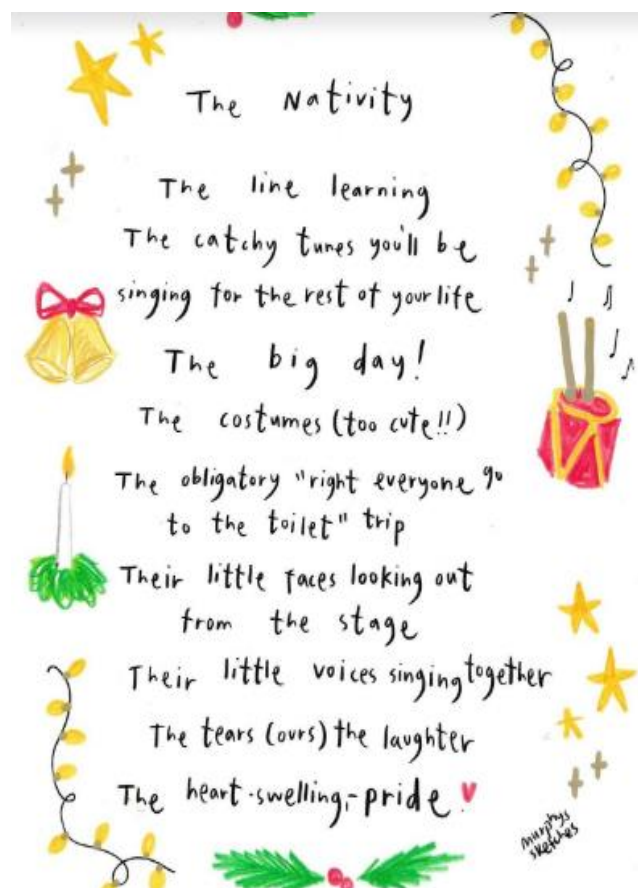 The Nativity
The line learning
The catchy tunes you'll be
singing for the rest of your life
The big day!
The costumes (too cute!!)
The obligatory "right everyone go
to the toilet" trip
Their little faces looking out
from the stage
Their little voices singing together
The tears (ours) the laughter
The heart-swelling-pride
murphys
sketches